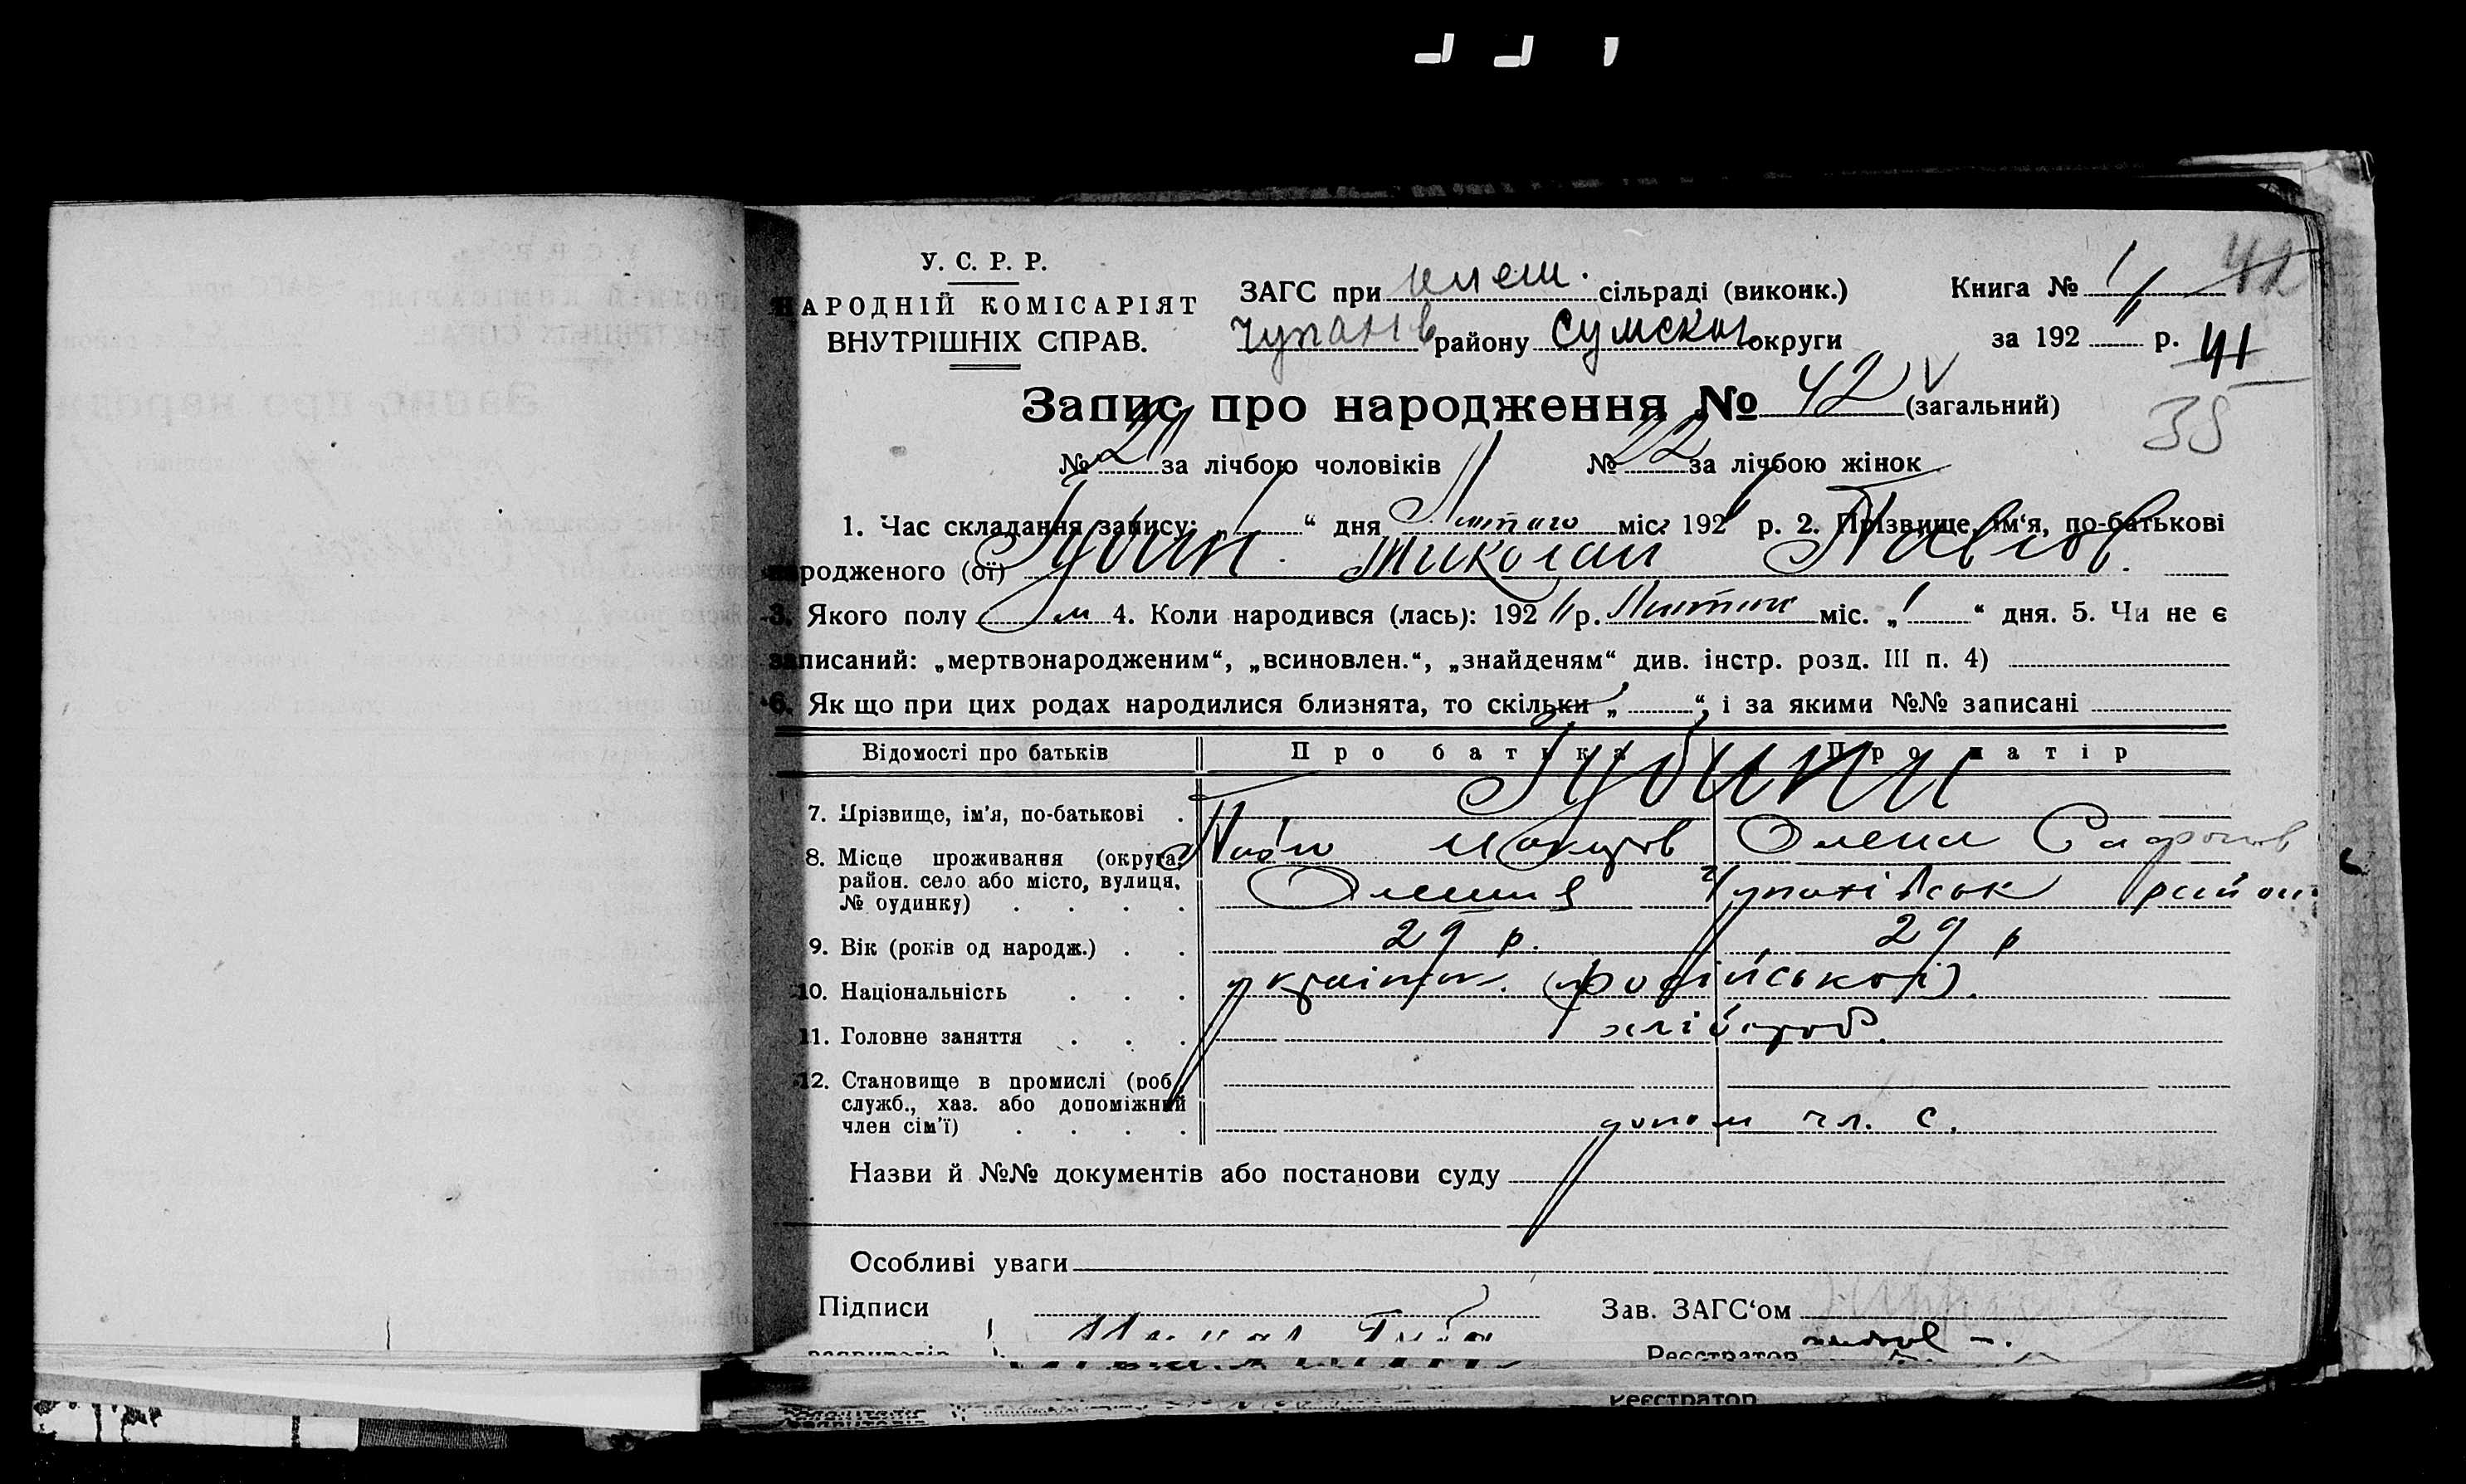 У. С. Р. Р.
НАРОДНІЙ КОМІСАРІЯТ
ВНУТРІШНІХ СПРАВ.
ЗАГС при сільраді (виконк.)
району Сумской округи
Книга № 1
за 192 р.
42
41
38
Запис про народження № 42 (загальний)
№ за лічбою чоловіків № 22 за лічбою жінок
1. Час складання запису: „ “ дня Лютого міс. 192 р. 2. Прізвище, ім‘я, по-батькові
народженого (ої) Губин Миколай Павлов.
3. Якого полу м 4. Коли народився (лась): 192 р. Лютого міс. „1“ дня. 5. Чи не є
записаний: „мертвонародженим“, „всиновлен.“, „знайденям“ див. інстр. розд. III п. 4)
6. Як що при цих родах народилися близнята, то скільки „ “, і за якими №№ записані
Відомості про батьків Про батька Про матір
Губини
7. Прізвище, ім‘я, по-батькові
Олена
8. Місце проживання (округа, район. село або місто, вулиця, № будинку)
Олешня Чупахівськ район
9. Вік (років од народж.) 29 р. 29 р
10. Національність (російської).
11. Головне заняття хлібороб.
12. Становище в промислі (роб., служб., хаз. або допоміжний член сім‘ї) допом чл. с.
Назви й №№ документів або постанови суду
Особливі уваги
Підписи
Зав. ЗАГС‘ом
заявителів
Реєстратор
Реєстратор